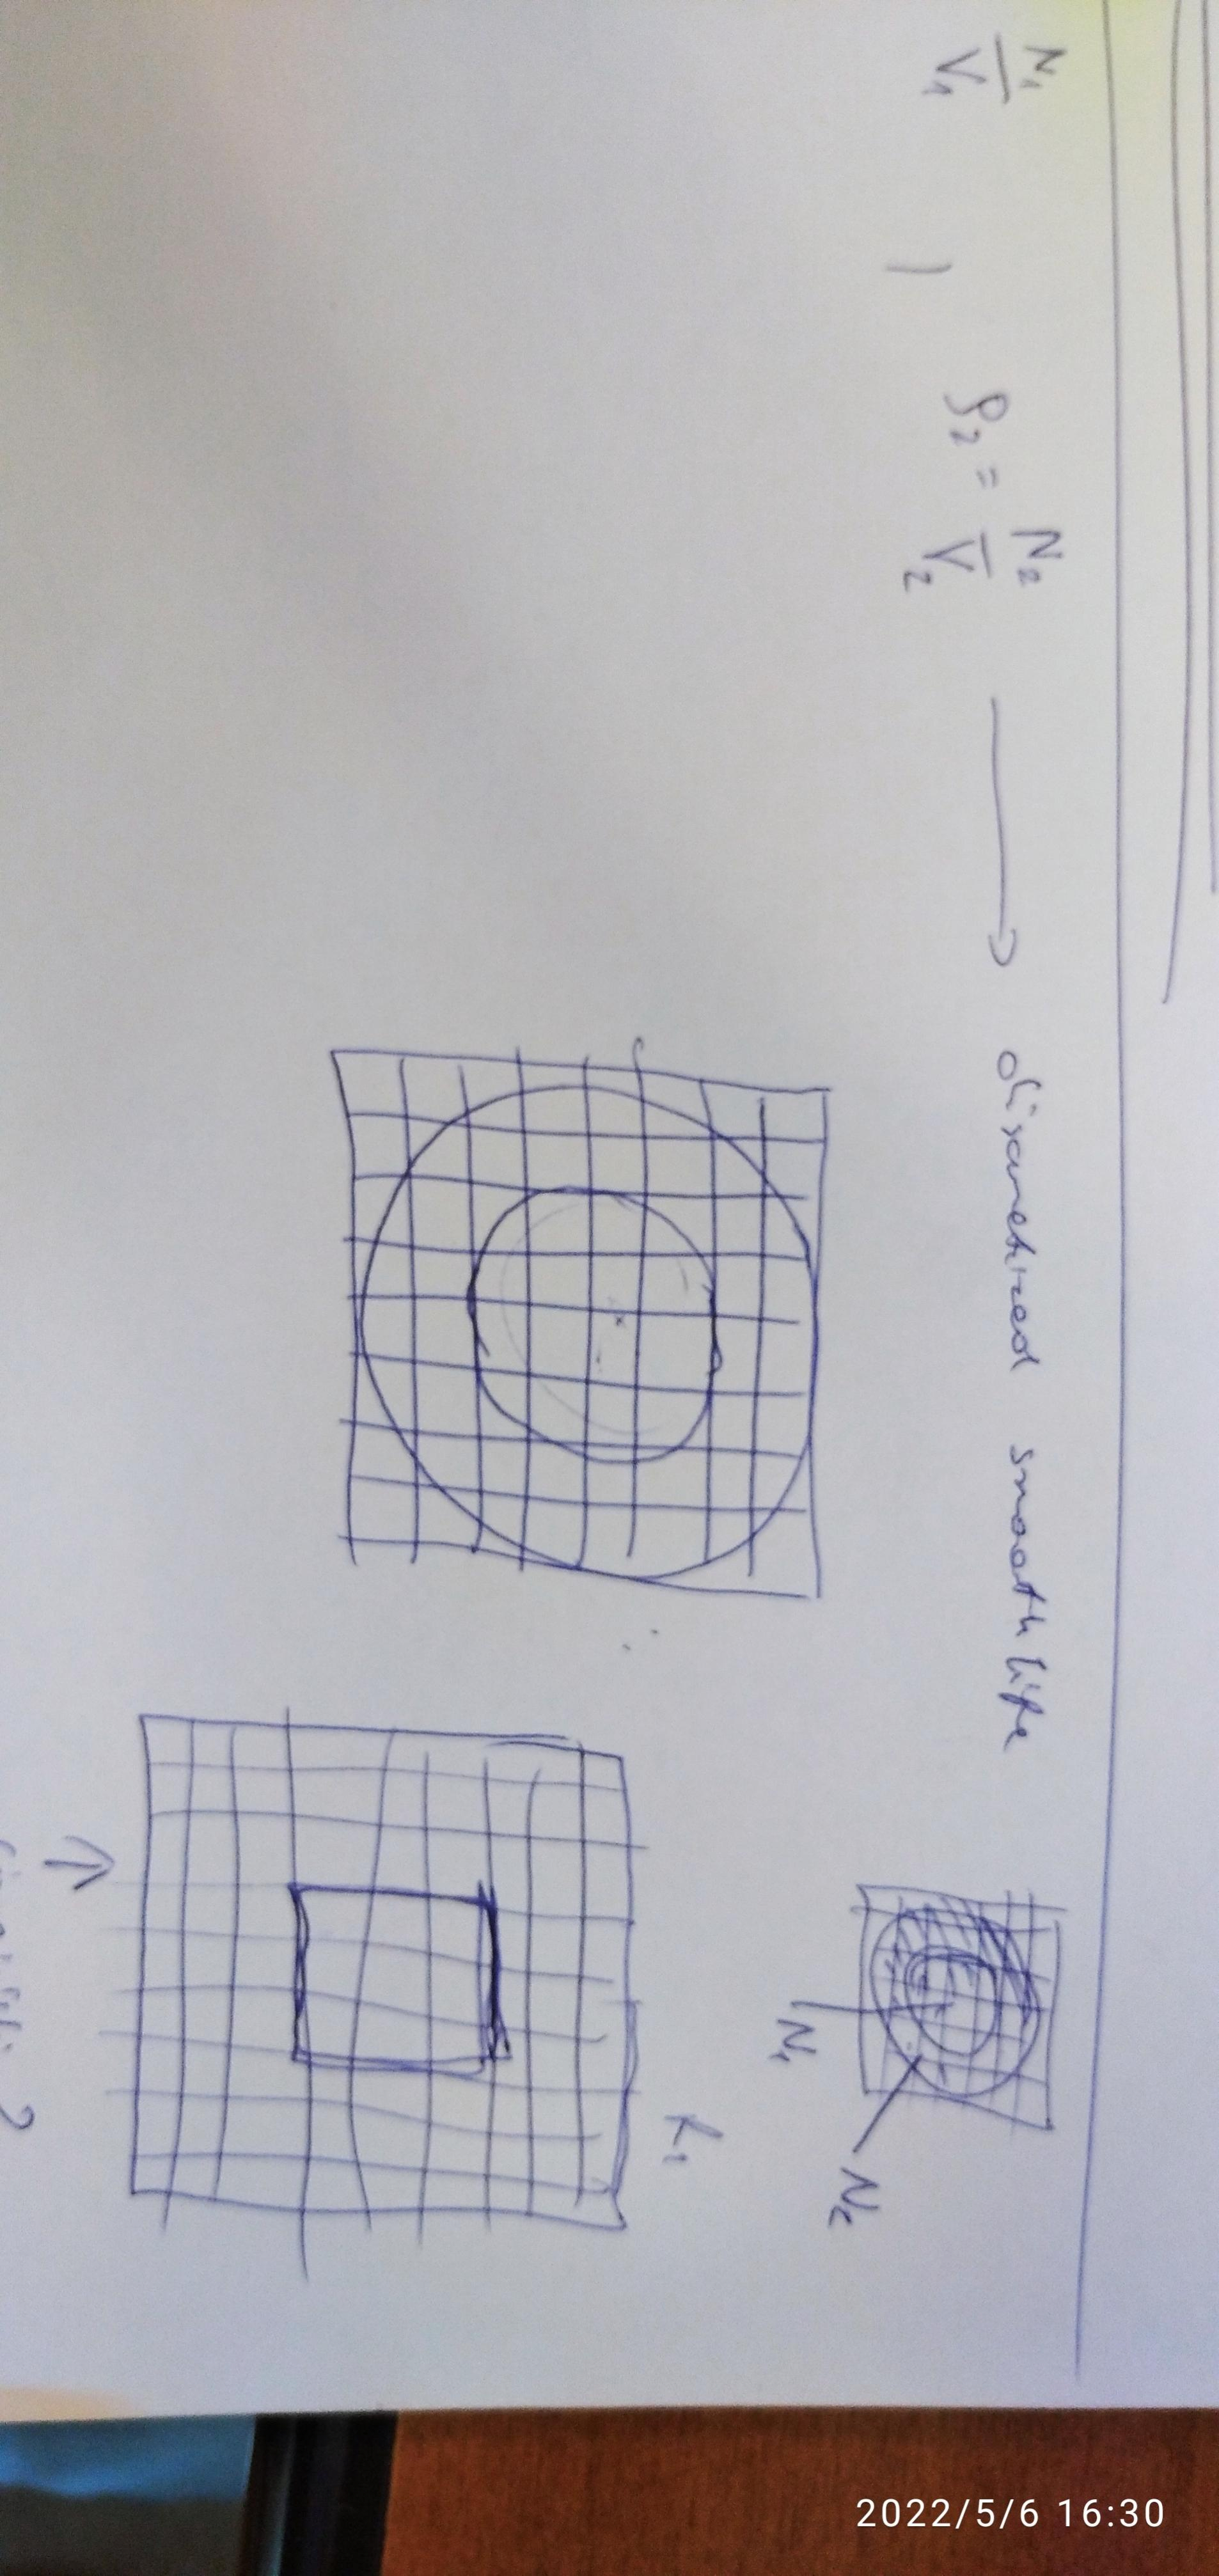 N₁
—
V₁ , ρ₂ = N₂
—
V₂ → discretized smooth life
N₁
N₂
2
2022/5/6 16:30